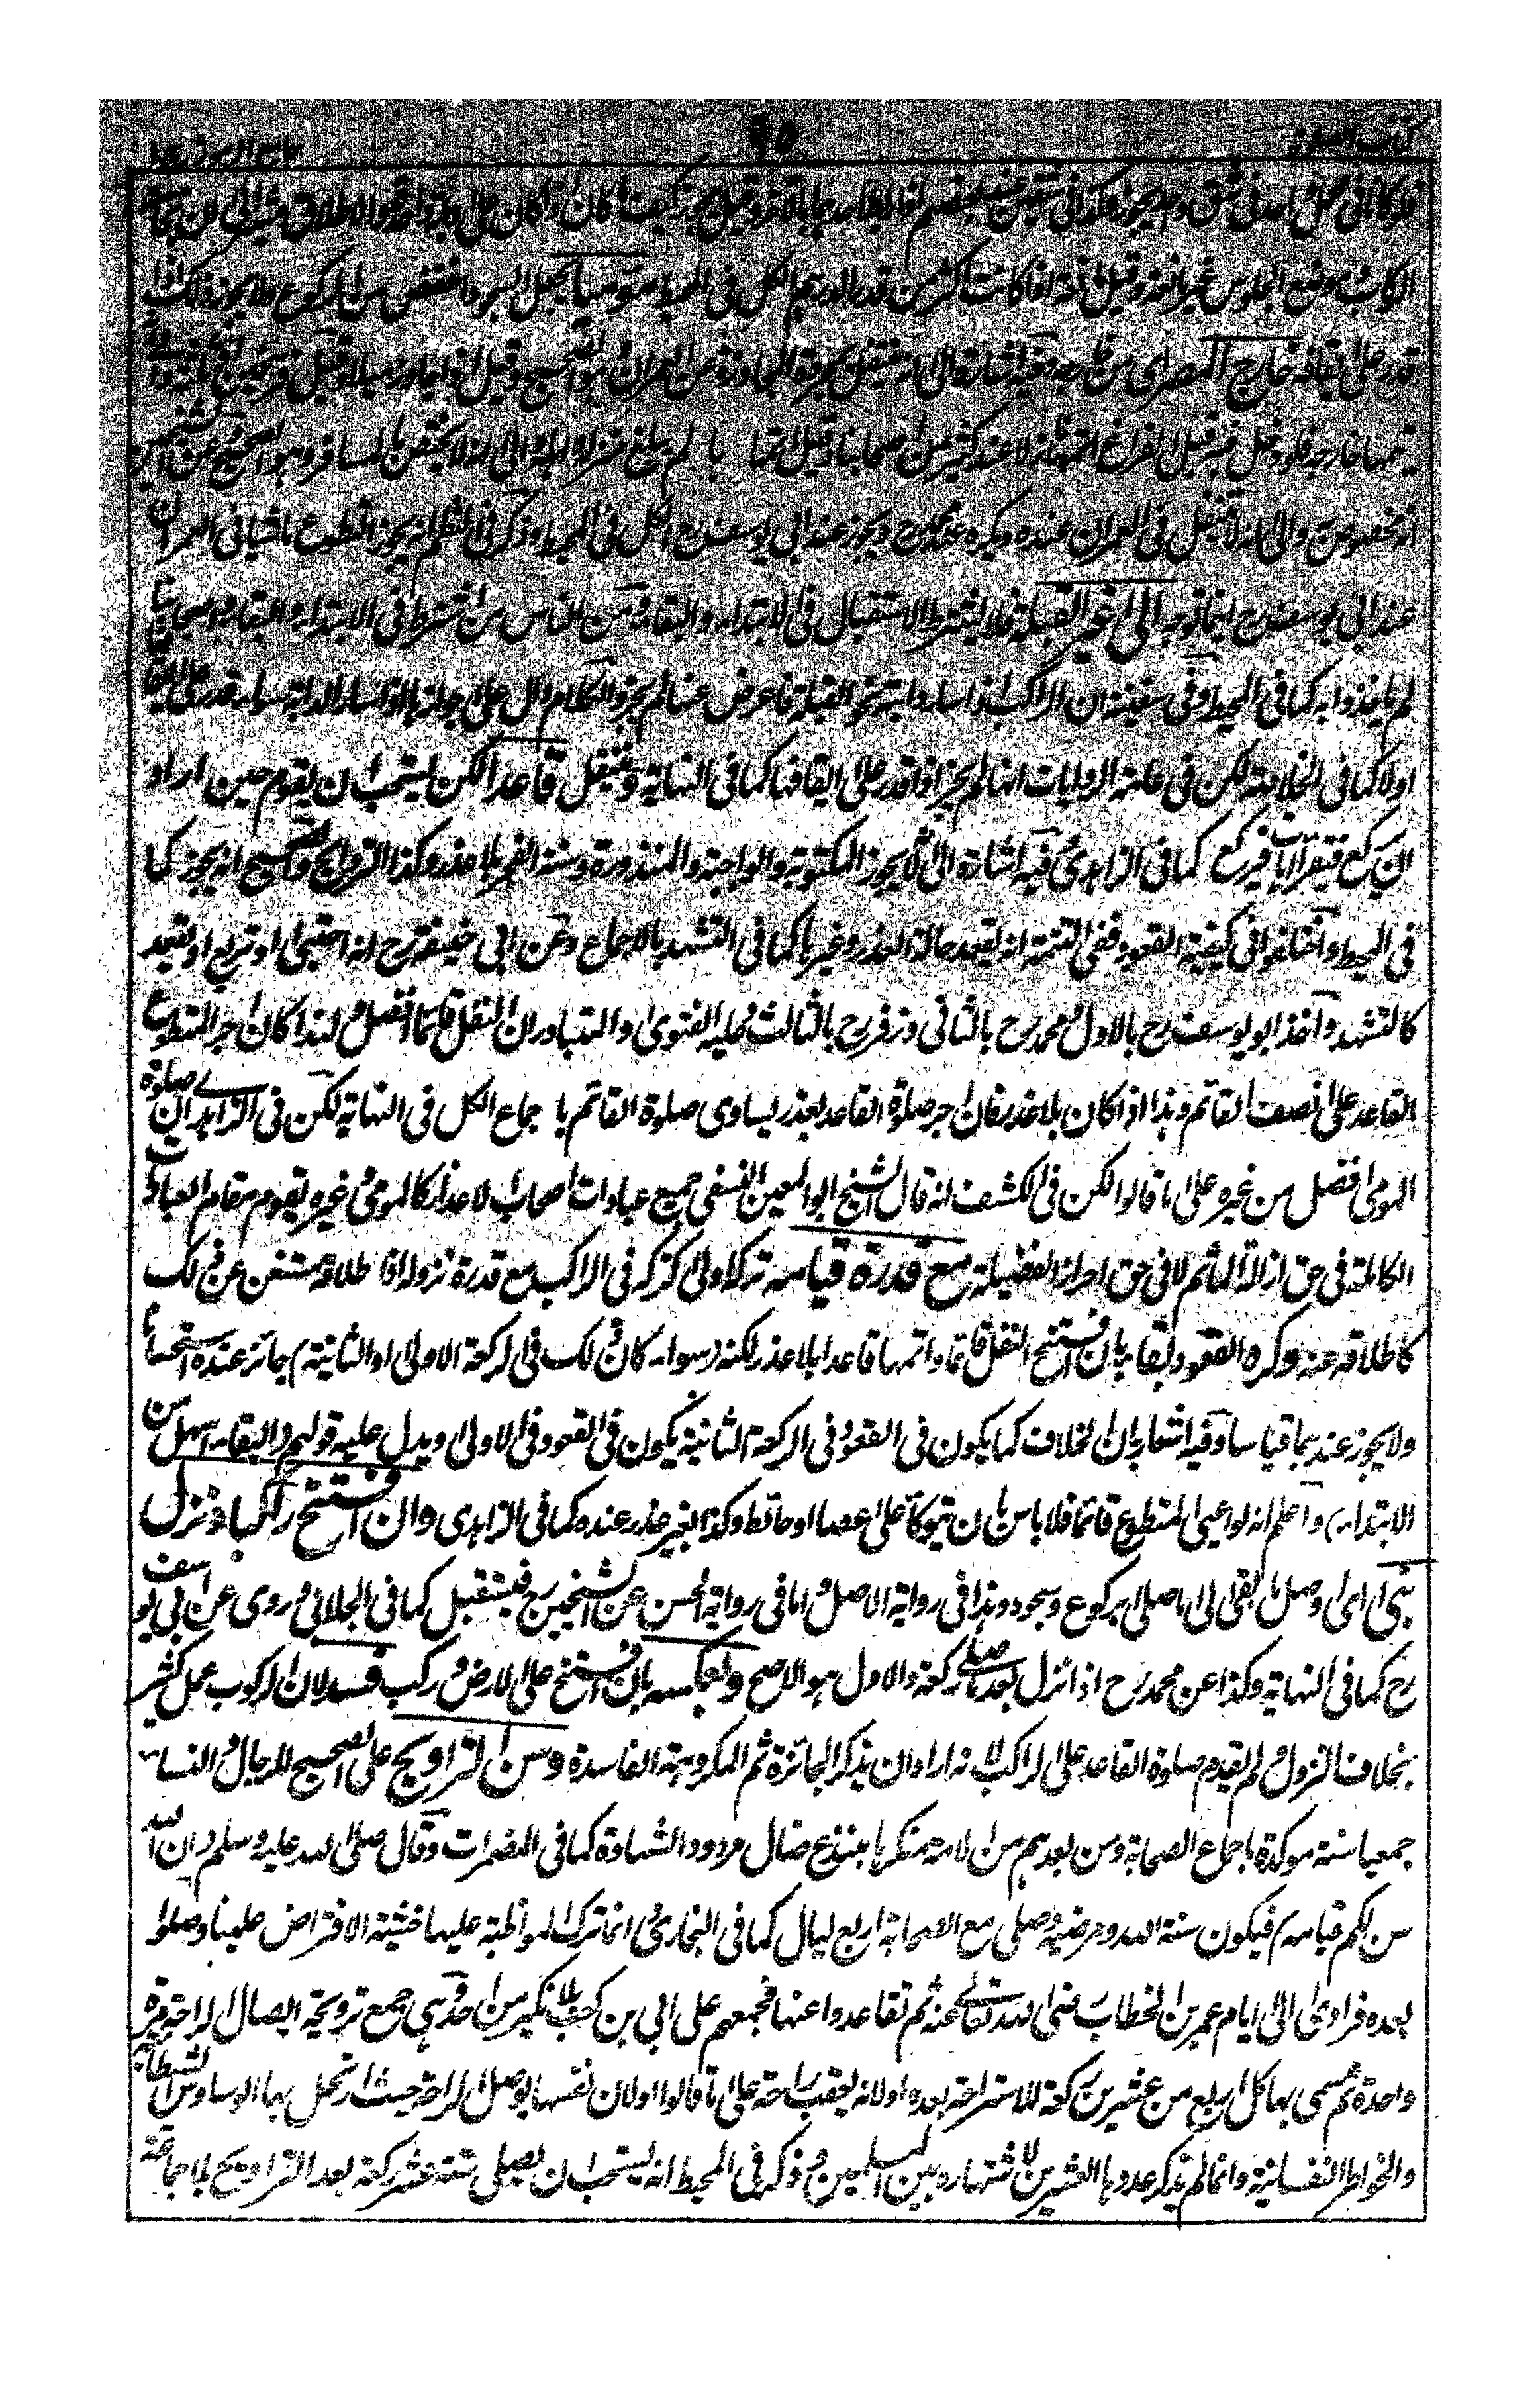 كتاب الصلاة ٩٥ جامع الرموز ج١
فلو كانا في محمل احد في شق واحد يجوز وكذا في شقين
الركاب وموضع الجلوس غير مانعة وقيل مانعة اذا كانت اكثر من قدر الدرهم الكل في المحيط موميا يجعل السجود اخفض من الركوع ولا يجوز ذلك اذا
قدر على ايقافه خارج المصر اى من فيه اشارة الى انه يتنفل بمجرد المجاوزة عن العمران هو الصحيح وقيل اذا جاوز ميلا وقيل فرسخين
يتمها خارجه فلو دخل فيه قبل الفراغ اتمها نازلا عند كثير من اصحابنا وقيل اتمها ما لم يبلغ منزله والى انه لا يختص بالمسافر وهو الصحيح عن الشيخين
انه مخصوص به والى انه لا يتنفل في العمران عنده ويكره عند محمد رح ويجوز عند ابي يوسف رح الكل في المحيط وذكر في النظم انه يجوز التطوع ماشيا في العمران
عند ابي يوسف رح اينما توجه الى غير القبلة فلا يشترط الاستقبال في الابتداء والبقاء ومن الناس من اشترط في الابتداء والبقاء واصحابنا
لم ياخذوا به كما في المحيط وفي سفينة ان الراكب اذا سار دابته نحو القبلة فاعرض عنها لم يجز والكلام دال على جوازها اذا سار الدابة سواء قدر على ايقافها
اولا كما في الخلاصة لكن في عامة الروايات انها لم يجز اذا قدر على ايقافها كما في النهاية ويتنفل قاعدا لكن يستحب ان يقوم حين اراد
ان يركع فيقرأ ايات فيركع كما في الزاهدي وفيه اشارة الى انه لا يجوز المكتوبة والواجبة والمنذورة وسنة الفجر بلا عذر وكذا التراويح والصحيح انه يجوز كما
في المحيط واختلفوا في كيفية القعود ففي التتمة انه يقعد حالة العذر وغيرها كما في التشهد بالاجماع وعن ابي حنيفة رح انه احتبى او تربع او يقعد
كالتشهد واخذ ابو يوسف رح بالاول ومحمد رح بالثاني وزفر رح بالثالث وعليه الفتوى والمتبادر ان التنفل قائما افضل ولهذا كان اجر المتطوع
القاعد على نصف القائم وهذا اذا كان بلا عذر فان اجر صلوة القاعد بعذر يساوي صلوة القائم باجماع الكل في النهاية لكن في الزاهدي ان صلوة
المومى افضل من غيره على ما قالوا لكن في الكشف انه قال الشيخ ابو المعين النسفي جميع عبادات اصحاب الاعذار كالمومى وغيره يقوم مقام العبادات
الكاملة في حق ازالة الماثم لا في حق احراز الفضيلة مع قدرة قيامه تركه اولى كتركه في الراكب مع قدرة نزوله اذا اطلاقه مستغن عن ذلك
كاطلاقه عنه وكره القعود بقاء بان افتتح النفل قائما واتمها قاعدا بلا عذر لكنه (سواء كان ذلك في الركعة الاولى او الثانية) جائز عنده استحسانا
ولا يجوز عندهما قياسا وفيه اشعار بان الخلاف كما يكون في القعود في الركعة الثانية يكون في القعود في الاولى ويدل عليه قولهم (البقاء اسهل من
الابتداء) واعلم انه لو اعيى المتطوع قائما فلا باس بان يتوكأ على عصا او حائط وكذا بغير عذر عنده كما في الزاهدي وان افتتح راكبا ونزل
بنى اى وصل ما بقى الى ما صلى بركوع وسجود وهذا في رواية الاصل واما في رواية الحسن عن الشيخين رح فيستقبل كما في الجلابي وروى عن ابي يوسف
رح كما في النهاية وكذا عن محمد رح اذا نزل بعد ما صلى ركعة والاول هو الاصح وبعكسه بان افتتح على الارض وركب فسد لان الركوب عمل كثير
بخلاف النزول ولم يقدم صلوة القاعد على الراكب لانه اراد ان يذكر الجائزة ثم المكروهة ثم الفاسدة وسن التراويح على الصحيح للرجال والنساء
جميعا سنة موكدة باجماع الصحابة ومن بعدهم من الامة منكرها مبتدع ضال مردود الشهادة كما في المضمرات وقال صلى الله عليه وسلم (ان الله
سن لكم قيامه) فيكون سنة الله ومرضيه وصلى مع الصحابة اربع ليال كما في البخاري وانما ترك المواظبة عليها خشية الافتراض علينا وصلوا
بعده فرادى الى ايام عمر بن الخطاب رضى الله تعالى عنه ثم تقاعدوا عنها فجمعهم على ابي بن كعب بلا نكير من احد وهى جمع ترويحة ايصال الراحة مرة
واحدة ثم سمى بها كل اربع من عشرين ركعة للاستراحة بعده او لانه يعقب راحة على ما قالوا او لان نفسها يوصل الراحة حيث ارتحل بها الوساوس الشيطانية
والخواطر النفسانية وانما لم يذكر عددها العشرين لاشتهاره بين المسلمين وذكر في المحيط انه يستحب ان يصلى ستة عشر ركعة بعد التراويح بلا جماعة